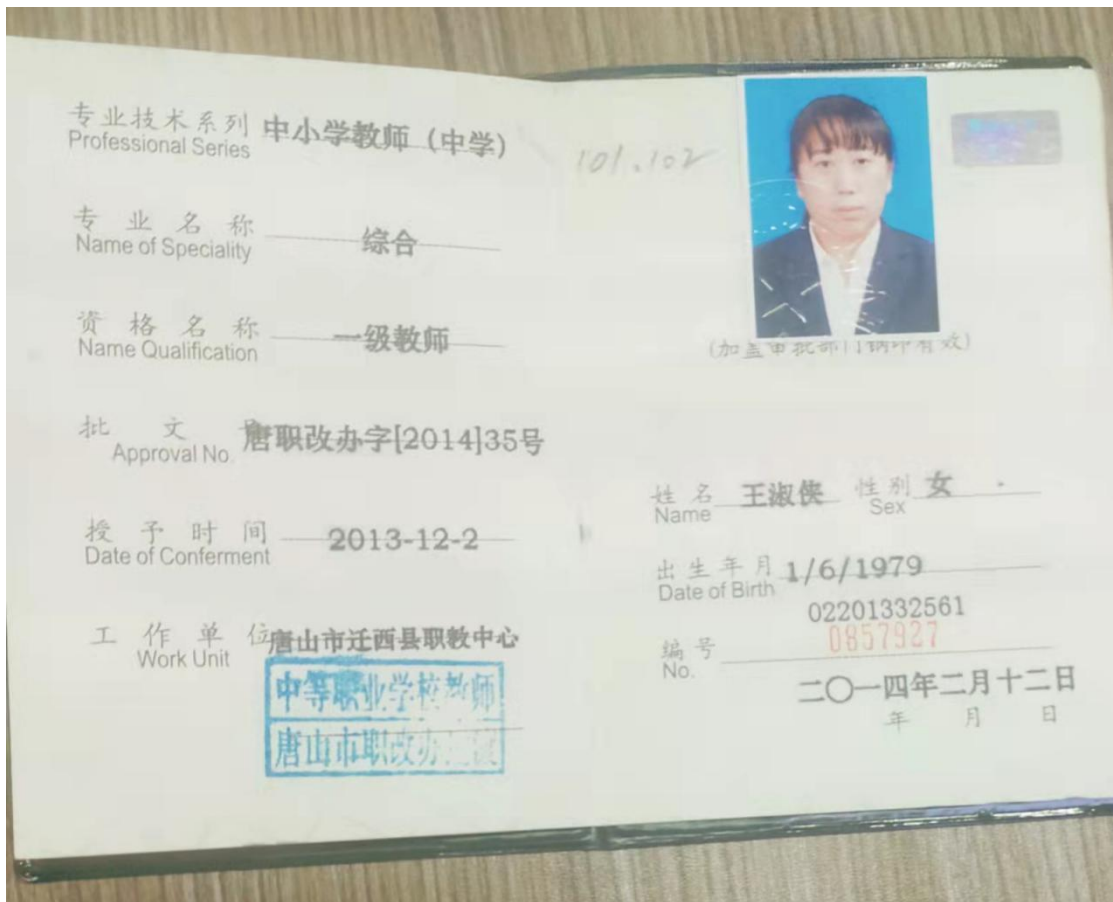 专业技术系列 中小学教师（中学）
Professional Series
专业名称 综合
Name of Speciality
资格名称 一级教师
Name Qualification
批文 唐职改办字[2014]35号
Approval No.
授予时间 2013-12-2
Date of Conferment
工作单位 唐山市迁西县职教中心
Work Unit
中等职业学校教师
唐山市职改办
101.102
(加盖审批部门钢印有效)
姓名 王淑侠 性别 女
Name Sex
出生年月 1/6/1979
Date of Birth
02201332561
编号 0857927
No.
二〇一四年二月十二日
年 月 日